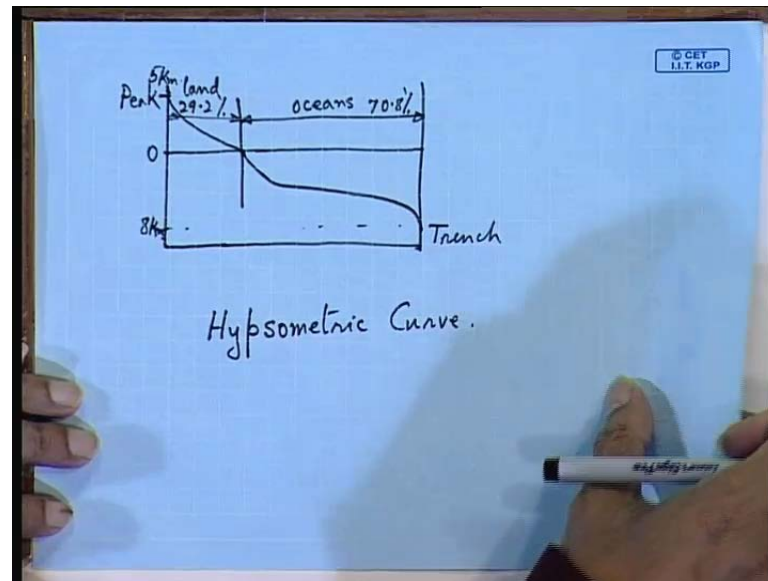 © CET
I.I.T. KGP
5km land
Peak 29.2% oceans 70.8%
0
8km
Trench
Hypsometric Curve.